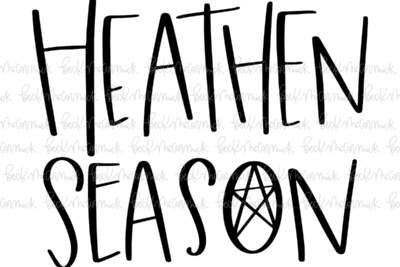 HEATHEN
SEASON